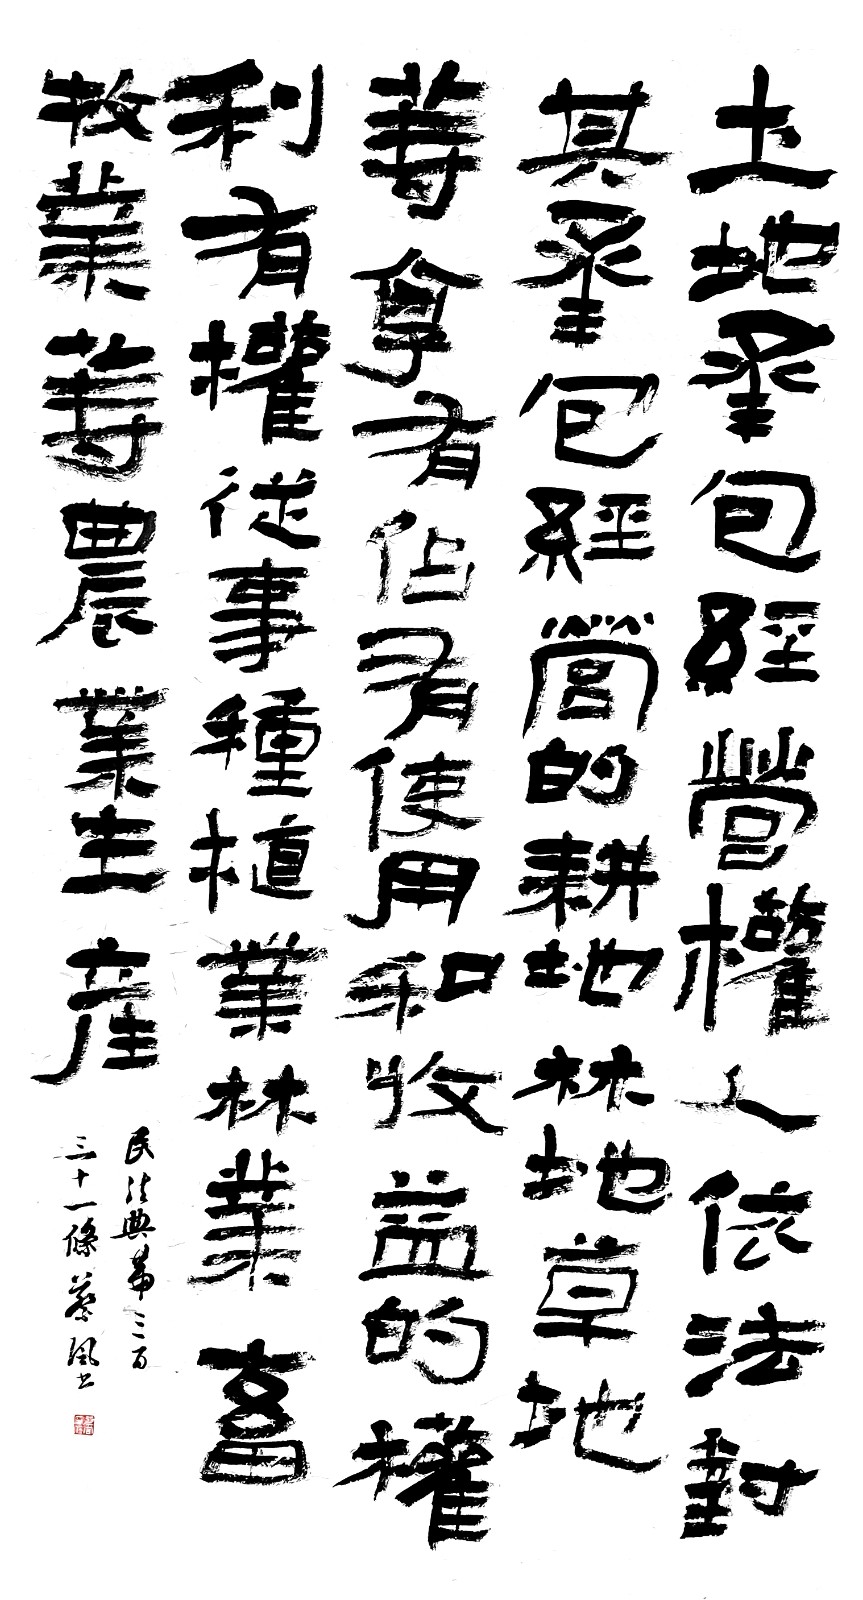 土地承包經營權人依法對
其承包經營的耕地林地草地
等享有佔有使用和收益的權
利有權從事種植業林業畜
牧業等農業生產
民法典第三百
三十一條蔡風書